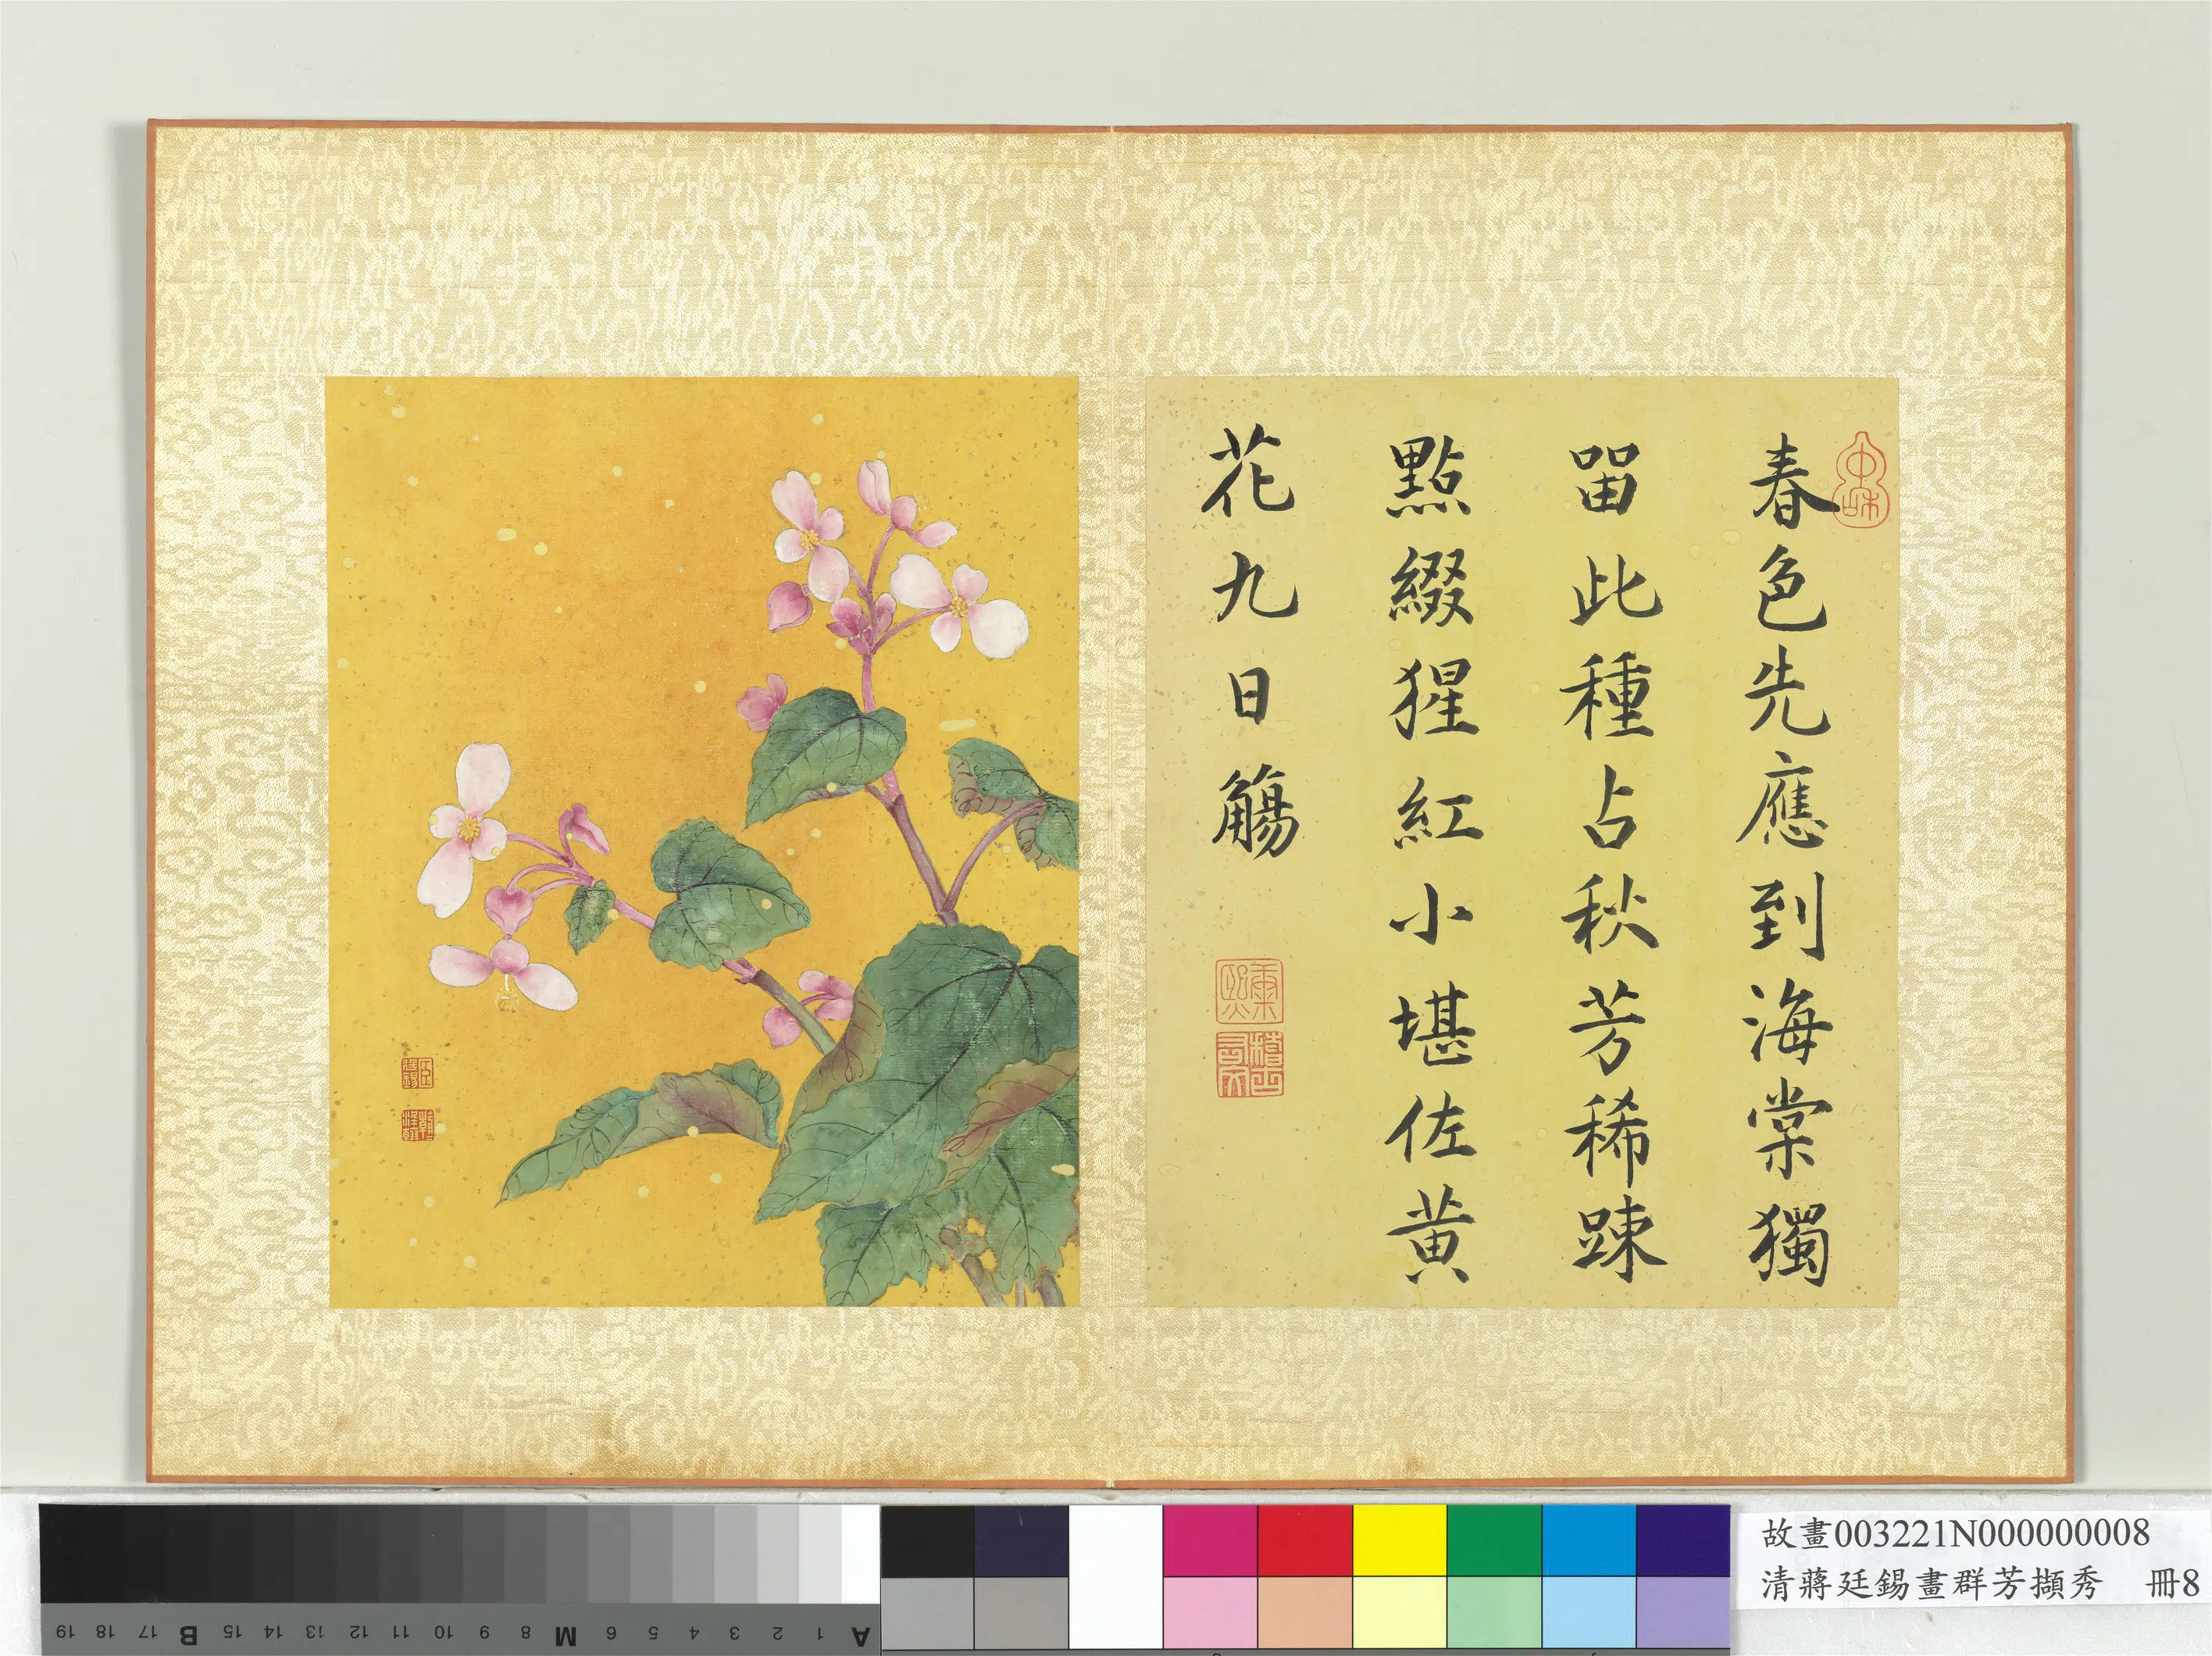 春色先應到海棠獨
留此種占秋芳稀踈
點綴猩紅小堪佐黄
花九日觴
中和
康熙
稽古右文
臣廷錫
朝朝染翰
故畫003221N000000008
清蔣廷錫畫群芳擷秀 冊8
A 1 2 3 4 5 6 M 8 9 10 11 12 13 14 15 B 17 18 19